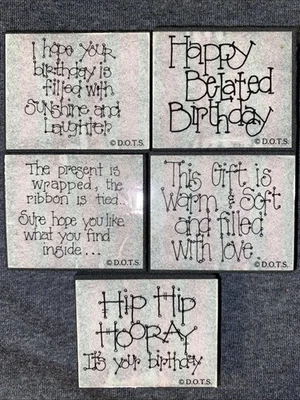 I hope your
birthday is
filled with
sunshine and
Laughter
© D.O.T.S.
Happy
Belated
Birthday
© D.O.T.S.
The present is
wrapped, the
ribbon is tied...
Sure hope you like
what you find
inside...
© D.O.T.S.
This Gift is
Warm & Soft
and filled
with love.
© D.O.T.S.
Hip Hip
HOORAY
It's your birthday
© D.O.T.S.